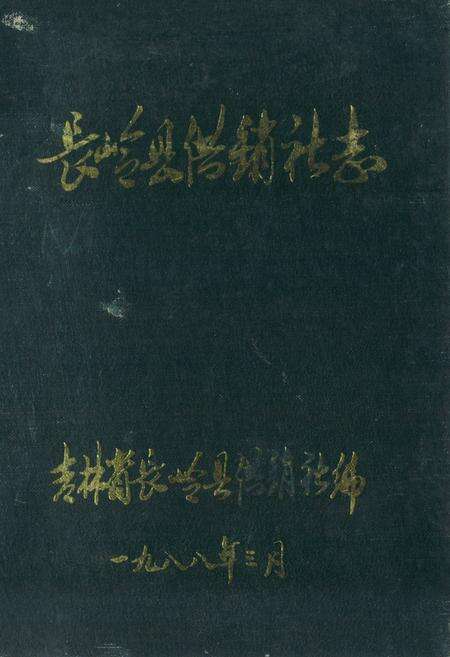 長岭县供銷社志
吉林省長岭县供销社编
一九八八年三月